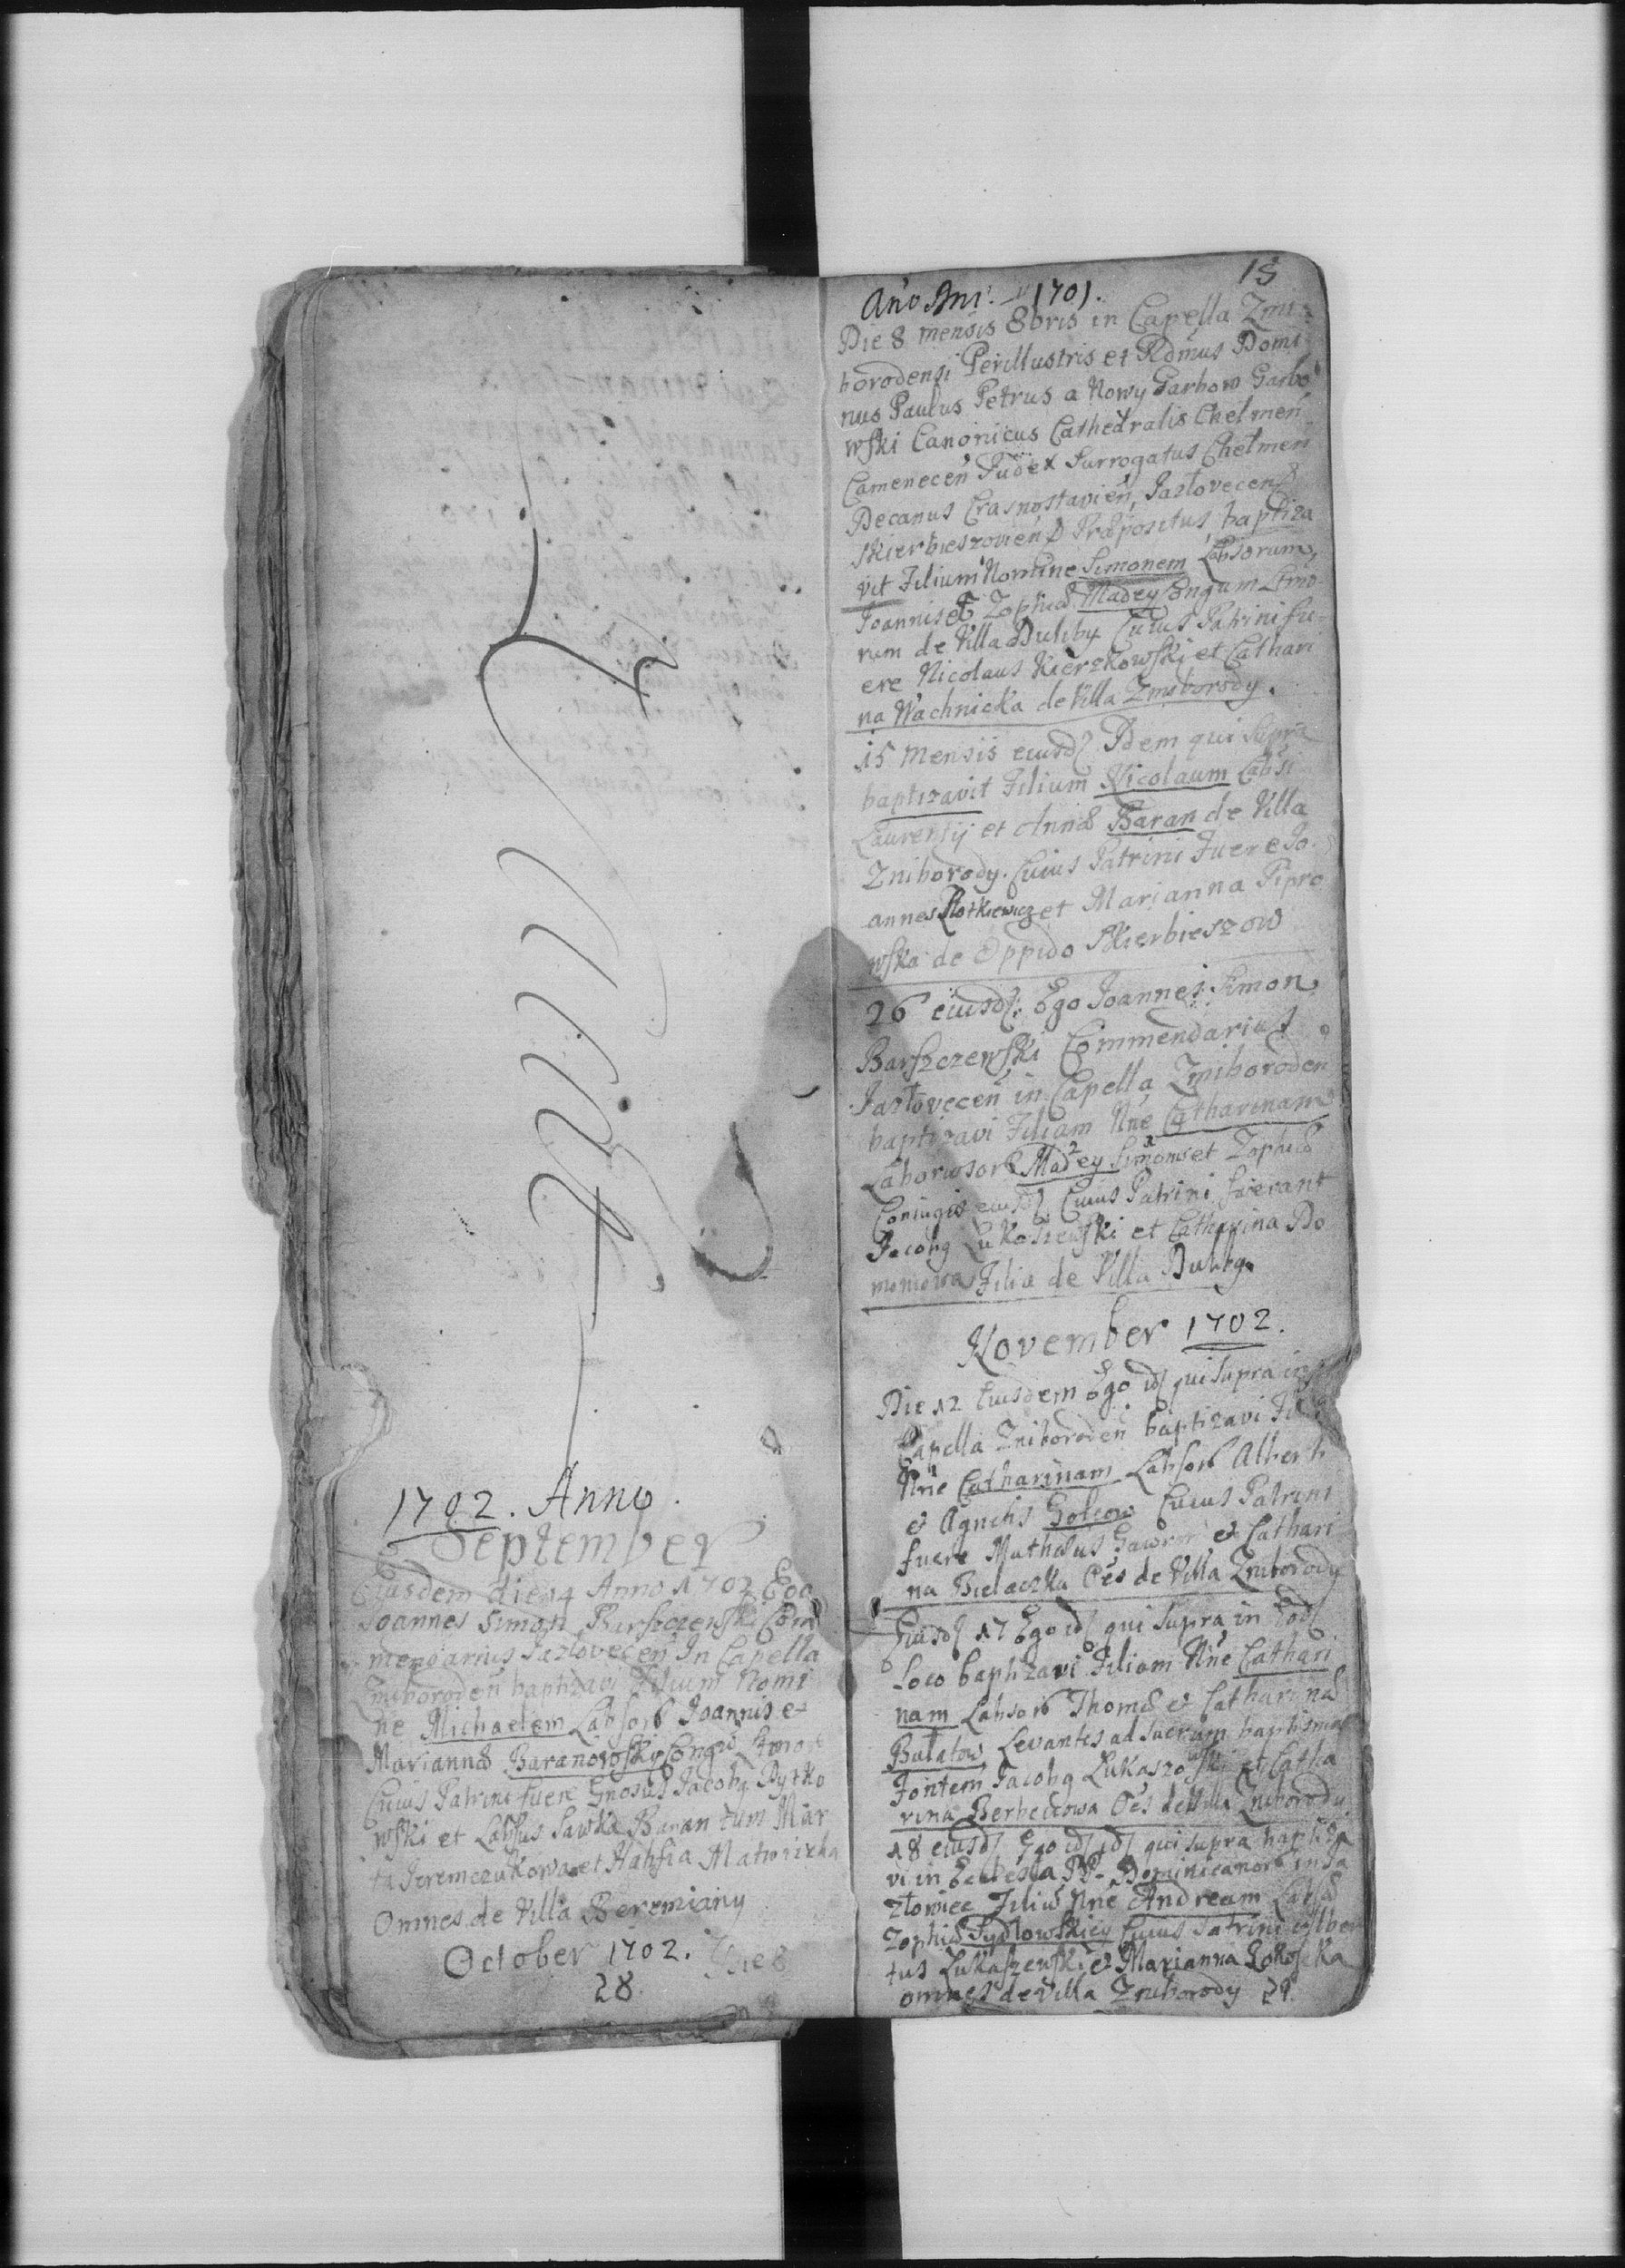 1702. Anno.
September
Eiusdem die 14 Anno 1702 Ego
Joannes Simon Barszczewski Com
mendarius Jazłovecen̄ In Capella
Zniboroden̄ baptizavi Filium Nomi
ne Michaelem Labsorꝫ Joannis et
Mariannæ Baranowsky
Cuius Patrini fuere Gnosus Jacobꝗ Dytko
wski et Labsus Sawka Baran tum Mar
ta Jeremczukowa et Hahsia
Omnes de Villa Beremiany
October 1702. Die 8
28.
15
Año Dni. 1701.
Die 8 mensis 8bris in Capella Zni
borodensi Perillustris et Rdmus Domi
nus Paulus Petrus a Nowy Garbow Garbo
wski Canonicus Cathedralis Chelmen̄
Camenecen̄ Judex Surrogatus Chelmen̄
Decanus Crasnostavien̄, Jazlovecen̄
Skierbieszovien̄ Præpositus baptiza
vit Filium Nomine Simonem Labsorum,
Joannis et Zophiæ Madey Congum Ltmo
rum de Villa Duliby Cuius Patrini fu
ere Nicolaus Kierzkowski et Cathari
na Wachnicka de Villa Zniborody.
15 Mensis eiusdꝫ Idem qui Supra
baptizavit Filium Nicolaum Labsi
Laurentij et Annæ Baran de Villa
Zniborody. Cuius Patrini Fuere Jo
annes et Marianna Pipro
wska de Oppido Skierbieszow
26 eiusdꝫ: Ego Joannes Simon
Barszczewski Commendarius
Jazlovecen̄ in Capella Zniboroden̄
baptizavi Filiam Nñe Catharinam
Laboriosorꝫ Madey Simonis et Zophiæ
Coniugis eiusdꝫ Cuius Patrini fuerant
Jacobꝗ Lukaszewski et Catharina Do
moniowa Filia de Villa Duliby
November 1702.
Die 12 Eiusdem Ego idꝫ qui Supra in
Capella Zniboroden̄ baptizavi Fil
Nñe Catharinam Labsorꝫ Alberti
et Agnetis Golcow Cuius Patrini
fuere Mathæus Gawron et Cathari
na Bielaczka Oẽs de Villa Zniborody
Eiusdꝫ 17 Ego idꝫ qui Supra in Eodꝫ
Loco baptizavi Filiam Nñe Cathari
nam Labsorꝫ Thomæ et Catharinæ
Bułatow Levantes ad Sacrum baptismas
Fontem Jacobꝗ Lukaszowski et Catha
rina Berbeciowa Oẽs de Villa Zniborody
18 eiusdꝫ Ego idꝫ qui supra baptiza
vi in Ecclesia PP. Dominicanorꝫ in Ja
złowiec Filiū Nñe Andream Labsæ
Zophiæ Fydlowskiey Cuius Patrini Alber
tus Lukaszewski et Marianna Kokoszka
omnes de Villa Zniborody 29.